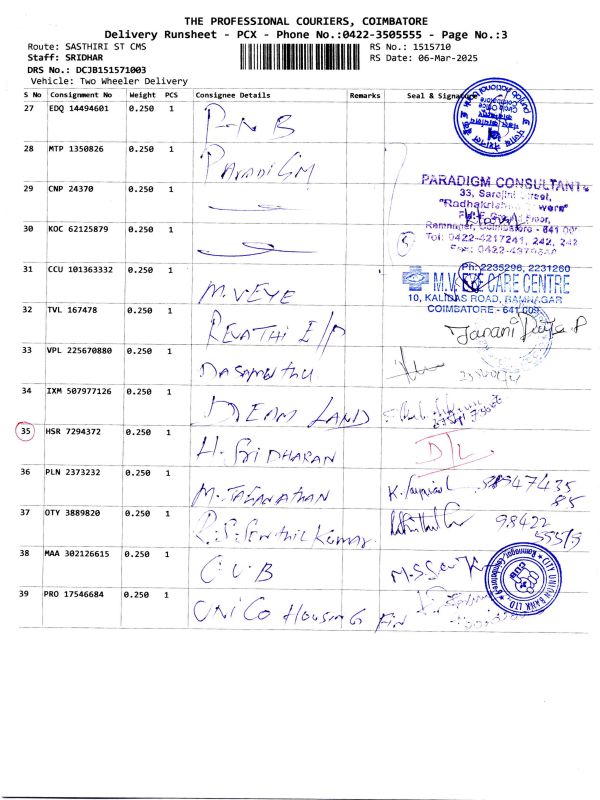 THE PROFESSIONAL COURIERS, COIMBATORE
Delivery Runsheet - PCX - Phone No.:0422-3505555 - Page No.:3
Route: SASTHIRI ST CMS RS No.: 1515710
Staff: SRIDHAR RS Date: 06-Mar-2025
DRS No.: DCJB151571003
Vehicle: Two Wheeler Delivery
S No Consignment No Weight PCS Consignee Details Remarks Seal & Signature
27 EDQ 14494601 0.250 1 P-N B
28 MTP 1350826 0.250 1 PARADIGM
PARADIGM CONSULTANT
29 CNP 24370 0.250 1
33, Sarojini Street,
"Radhakrishna Towers"
Floor,
Ramnagar, Coimbatore - 641 009
30 KOC 62125879 0.250 1
Tel: 0422-4217241, 242, 243
31 CCU 101363332 0.250 1 M.V EYE
Ph: 2235296, 2231260
M.V. EYE CARE CENTRE
10, KALIDAS ROAD, RAMNAGAR
COIMBATORE - 641 009
32 TVL 167478 0.250 1 REVATHI E/P
33 VPL 225670880 0.250 1 DASAMBUTHU
34 IXM 507977126 0.250 1 DREAM LAND
35 HSR 7294372 0.250 1 H. SRIDHARAN D/L
36 PLN 2373232 0.250 1 M. JAGANATHAN
37 OTY 3889820 0.250 1 R.S. Senthil Kumar. 98422
55519
38 MAA 302126615 0.250 1 C.U.B
CITY UNION BANK LTD.
CUB
39 PRO 17546684 0.250 1 UNICO HOUSING FIN